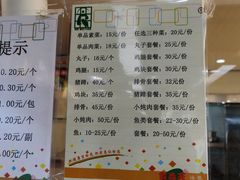 提示
0.20元/个
0.30元/个
1.00元/包
0.20元/个
0.20元/副
1.00元/个
单品素菜：15元/份
单品肉菜：18元/份
丸子：18元/份
鸡腿：15元/份
猪蹄：40元/个
鸡块：35元/份
排骨：45元/份
小炖肉：50元/份
鱼：10-25元/份
任选三种菜：20元/份
丸子套餐：25元/份
鸡腿套餐：25元/份
鸡块套餐：30元/份
排骨套餐：35元/份
猪蹄套餐：35元/份
小炖肉套餐：35元/份
鱼类套餐：22-30元/份
套餐：20-50元/份